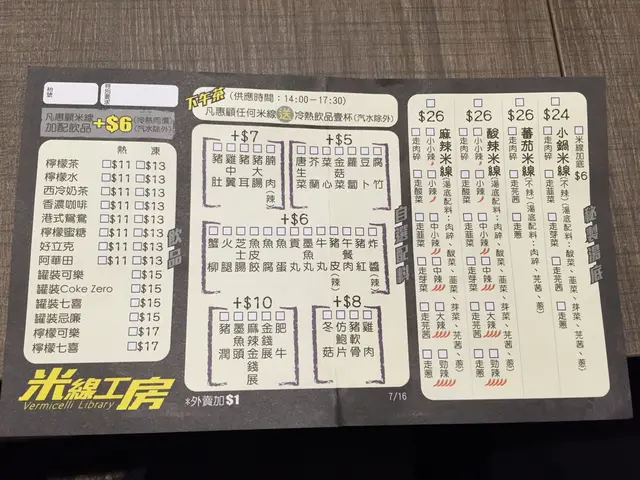 枱號
特別要求
凡惠顧米線
加配飲品 +$6 (冷熱同價)
(汽水除外)
熱 凍
檸檬茶 $11 $13
檸檬水 $11 $13
西冷奶茶 $11 $13
香濃咖啡 $11 $13
港式鴛鴦 $11 $13
檸檬蜜糖 $11 $13
好立克 $11 $13
阿華田 $11 $13
罐裝可樂 $15
罐裝Coke Zero $15
罐裝七喜 $15
罐裝忌廉 $15
檸檬可樂 $17
檸檬七喜 $17
飲品
米線工房
Vermicelli Library
下午茶 (供應時間:14:00-17:30)
凡惠顧任何米線送冷熱飲品壹杯(汽水除外)
+$7
豬肚
雞中翼
豬耳
豬大腸
腩肉(辣)
+$5
唐生菜
芥蘭
菜心
金菇
蘿蔔
豆卜
腐竹
+$6
蟹柳
火腿
芝士腸
魚皮餃
魚腐
魚蛋
貢丸
墨魚丸
牛丸
豬皮(辣)
午餐肉
豬紅
炸醬(辣)
+$10
豬潤
墨魚
麻辣金錢展
金錢展
肥牛
+$8
冬菇
仿鮑片
豬軟骨
雞肉
*外賣加$1
7/16
自選配料
$26
麻辣米線(湯底配料:肉碎、酸菜、韮菜、芽菜、芫茜、蔥)
走肉碎
走酸菜
走韮菜
走芽菜
走芫茜
走蔥
小小辣
小辣
中小辣
中辣
大辣
勁辣
$26
酸辣米線(湯底配料:肉碎、酸菜、韮菜、芽菜、芫茜、蔥)
走肉碎
走酸菜
走韮菜
走芽菜
走芫茜
走蔥
小小辣
小辣
中小辣
中辣
大辣
勁辣
$26
蕃茄米線(不辣)(湯底配料:肉碎、芫茜、蔥)
走肉碎
走芫茜
走蔥
$24
小鍋米線(不辣)(湯底配料:肉碎、酸菜、韮菜、芽菜、芫茜、蔥)
走肉碎
走酸菜
走韮菜
走芽菜
走芫茜
走蔥
米線加底 $6
湯底